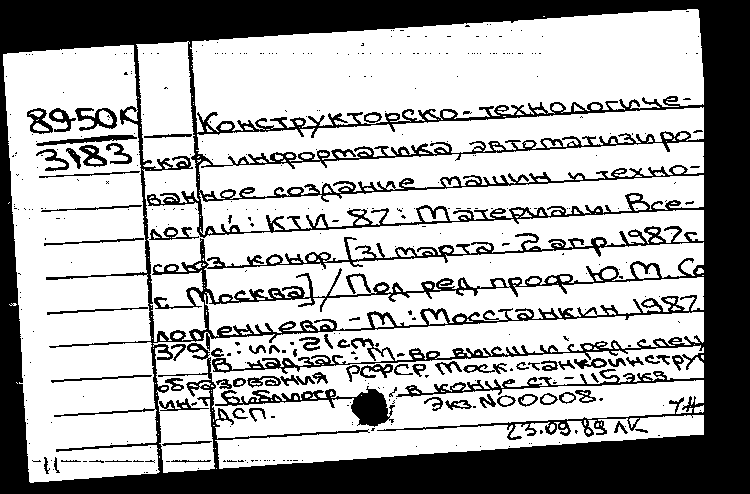 89-50К
3183
Конструкторско-технологиче-
ская информатика, автоматизиро-
ванное создание машин и техно-
логий: КТИ-87: Материалы Все-
союз. конф. [31 марта - 2 апр. 1987г.
г. Москва] / Под ред. проф. Ю.М. Со
ломенцева. - М.: Мосстанкин, 1987.
379 с.: ил.; 21 см.
В надзаг.: М-во высш. и сред. спец.
образования РСФСР. Моск. станкоинстру
ин-т. Библиогр. в конце ст. - 115 экз.
ДСП. Экз. N00008.
23.09.89 ЛК
11